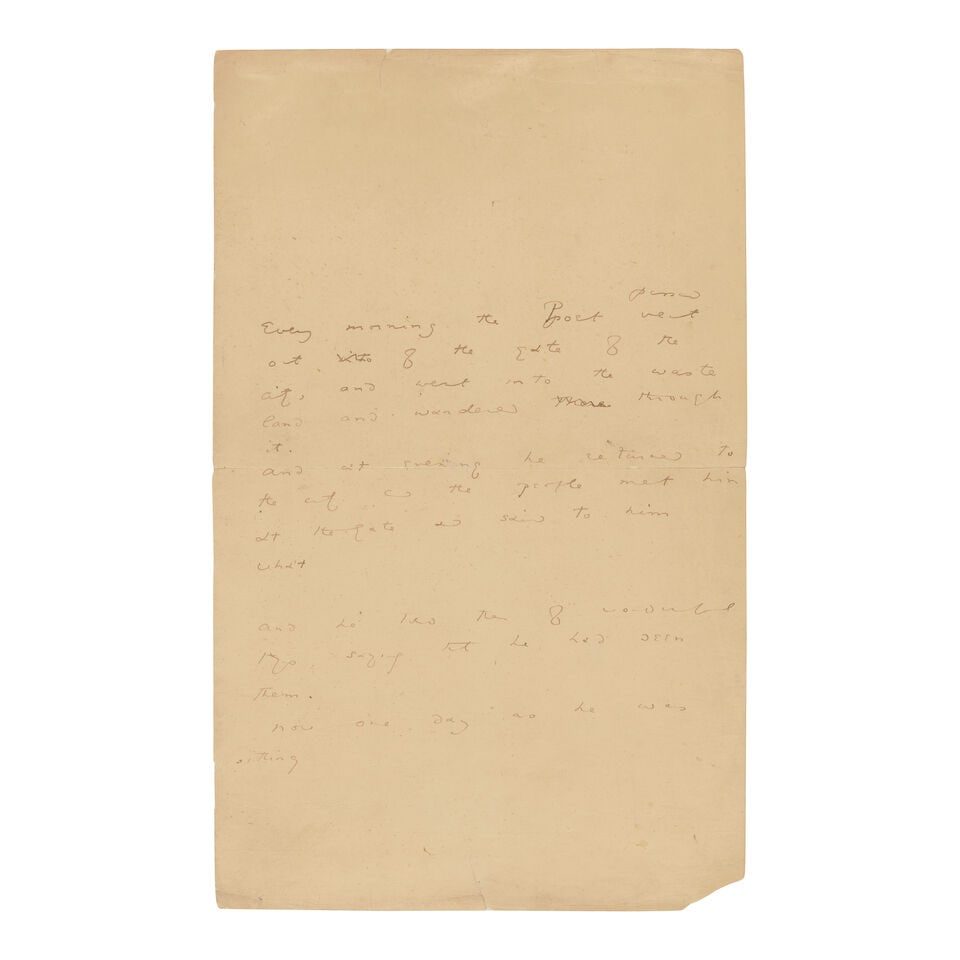 passed
Every morning the Poet went
out into of the gate of the
city, and went into the waste
land and wandered through
it.
and at evening he returned to
the city and the people met him
at the gate and said to him
what
and he told them of wonderful
things, saying that he had seen
them.
now one day as he was
sitting